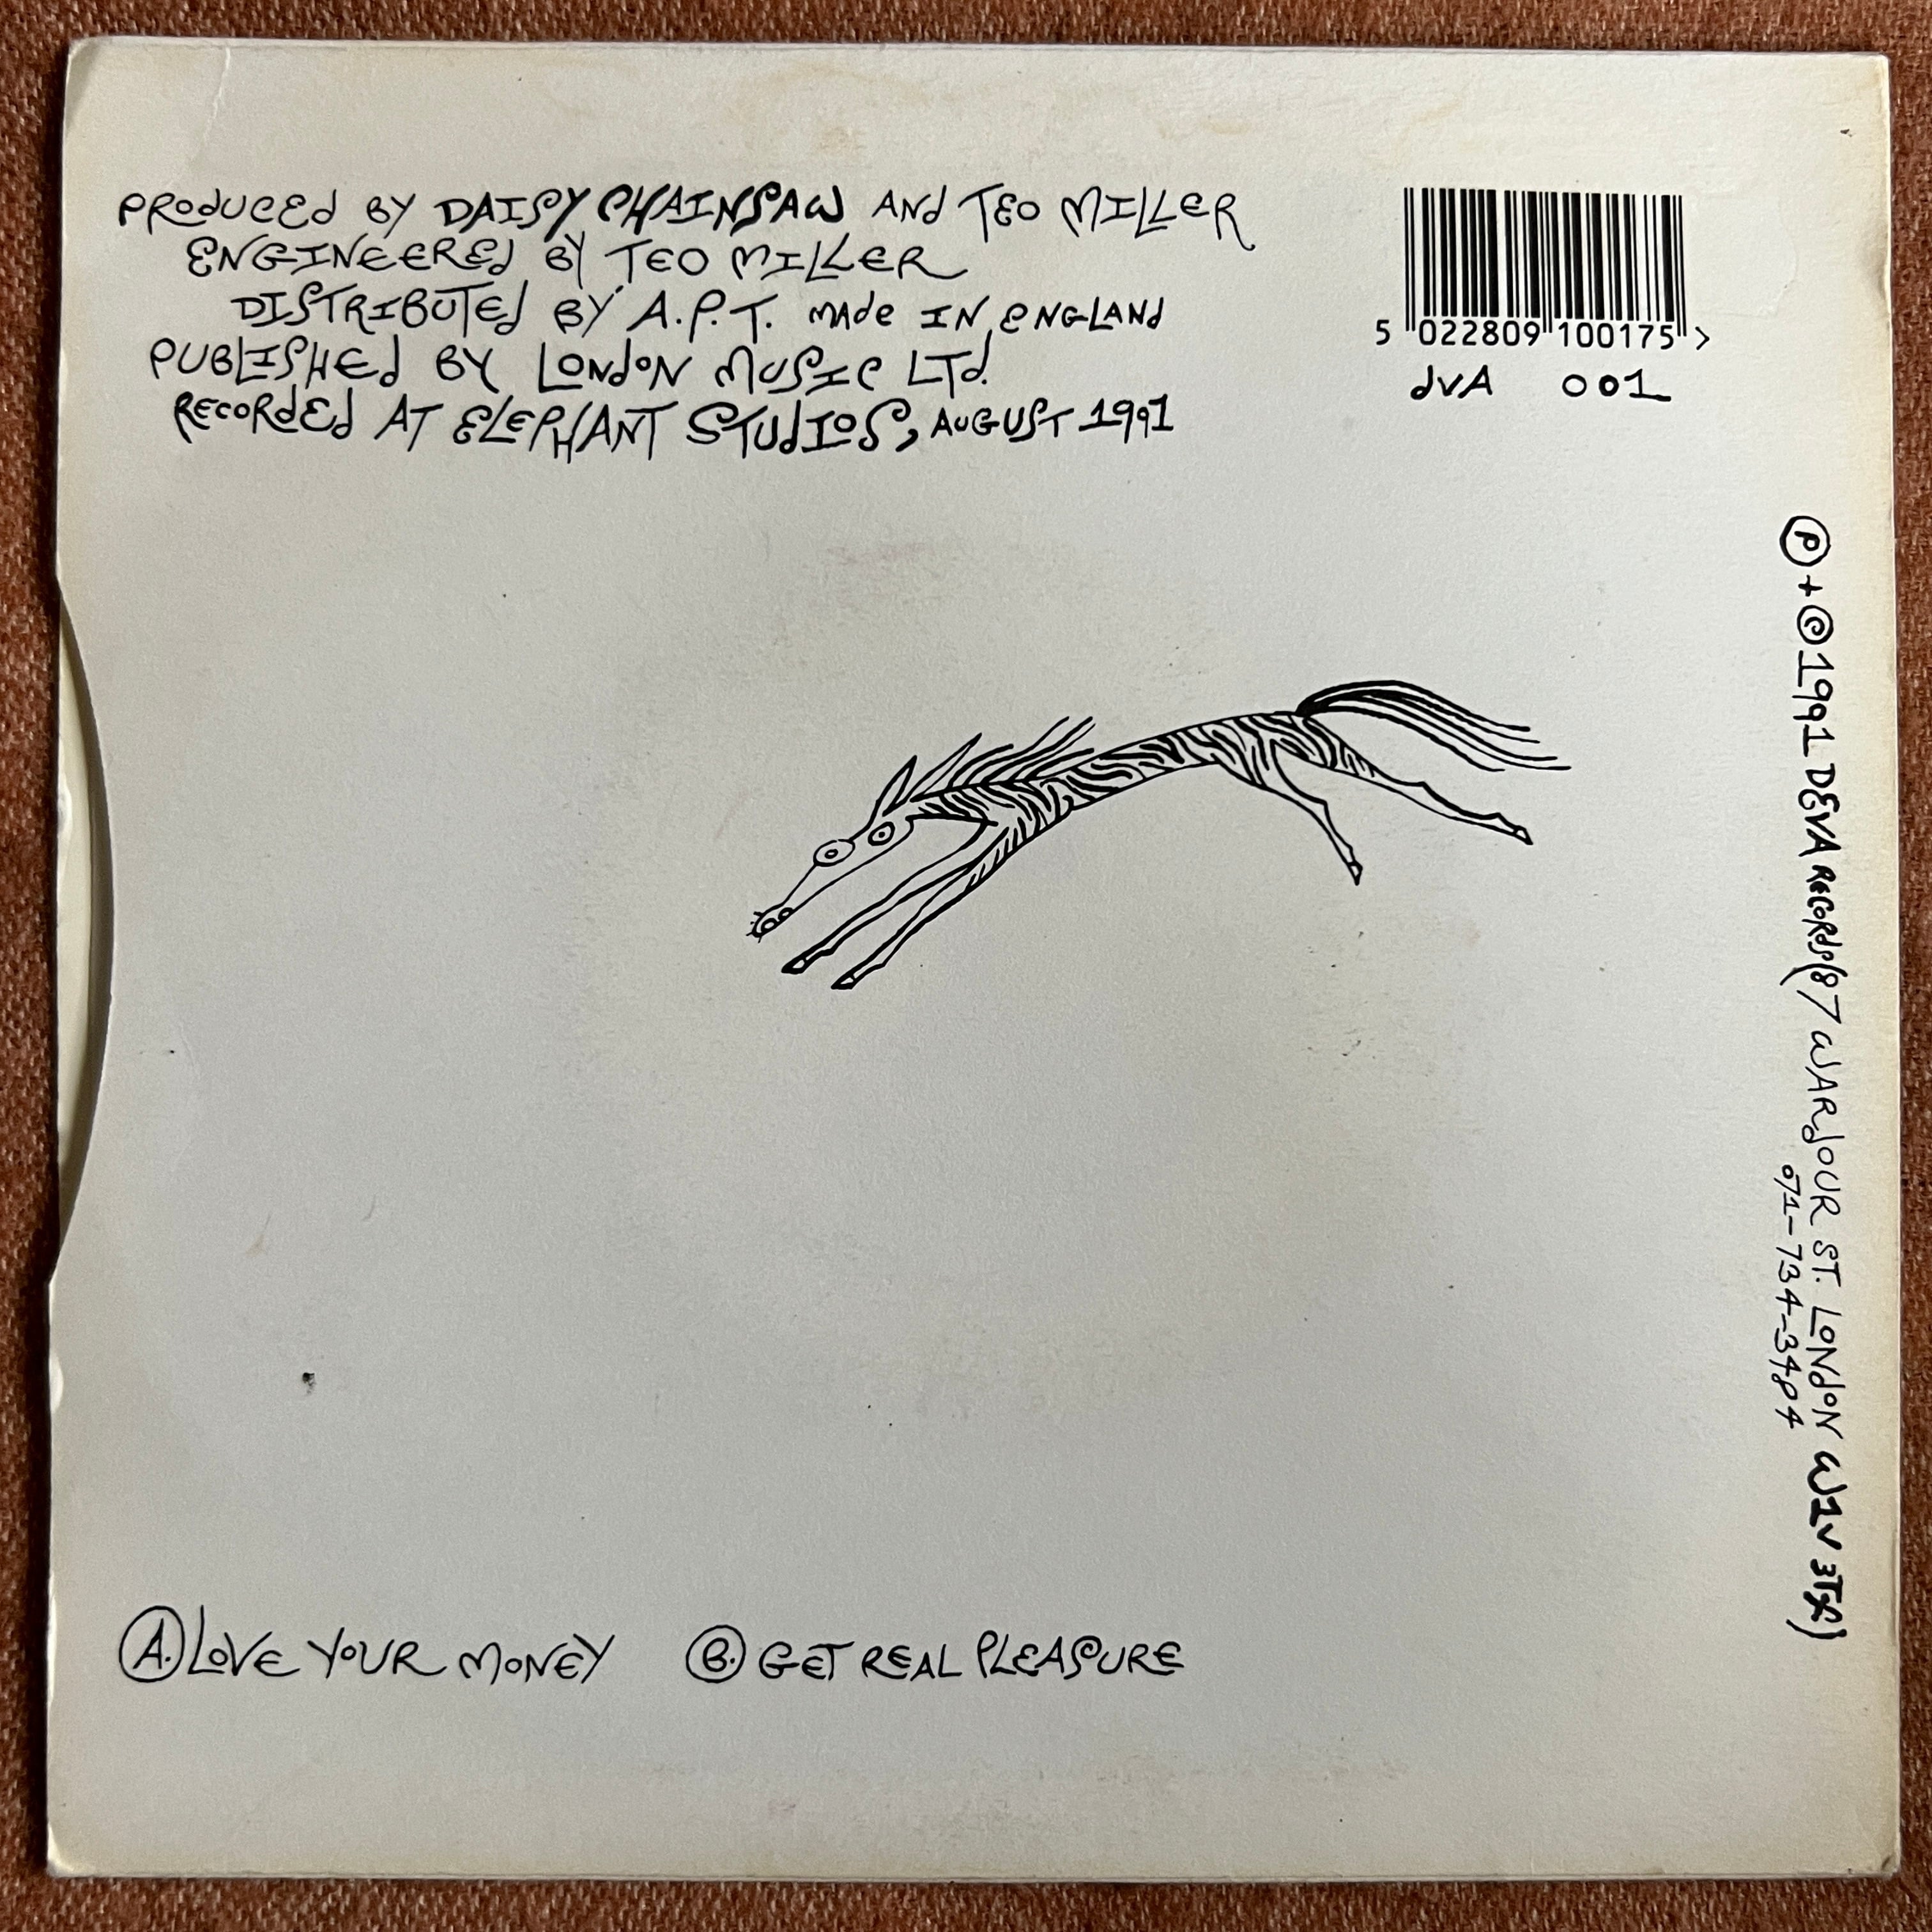 PRODUCED BY DAISY CHAINSAW AND TEO MILLER
ENGINEERED BY TEO MILLER
DISTRIBUTED BY A.P.T. MADE IN ENGLAND
PUBLISHED BY LONDON MUSIC LTD.
RECORDED AT ELEPHANT STUDIOS, AUGUST 1991
5 022809 100175 >
DVA 001
Ⓟ + © 1991 DEVA RECORDS (87 WARDOUR ST. LONDON W1V 3TF)
071-734-3484
Ⓐ. LOVE YOUR MONEY
Ⓑ. GET REAL PLEASURE